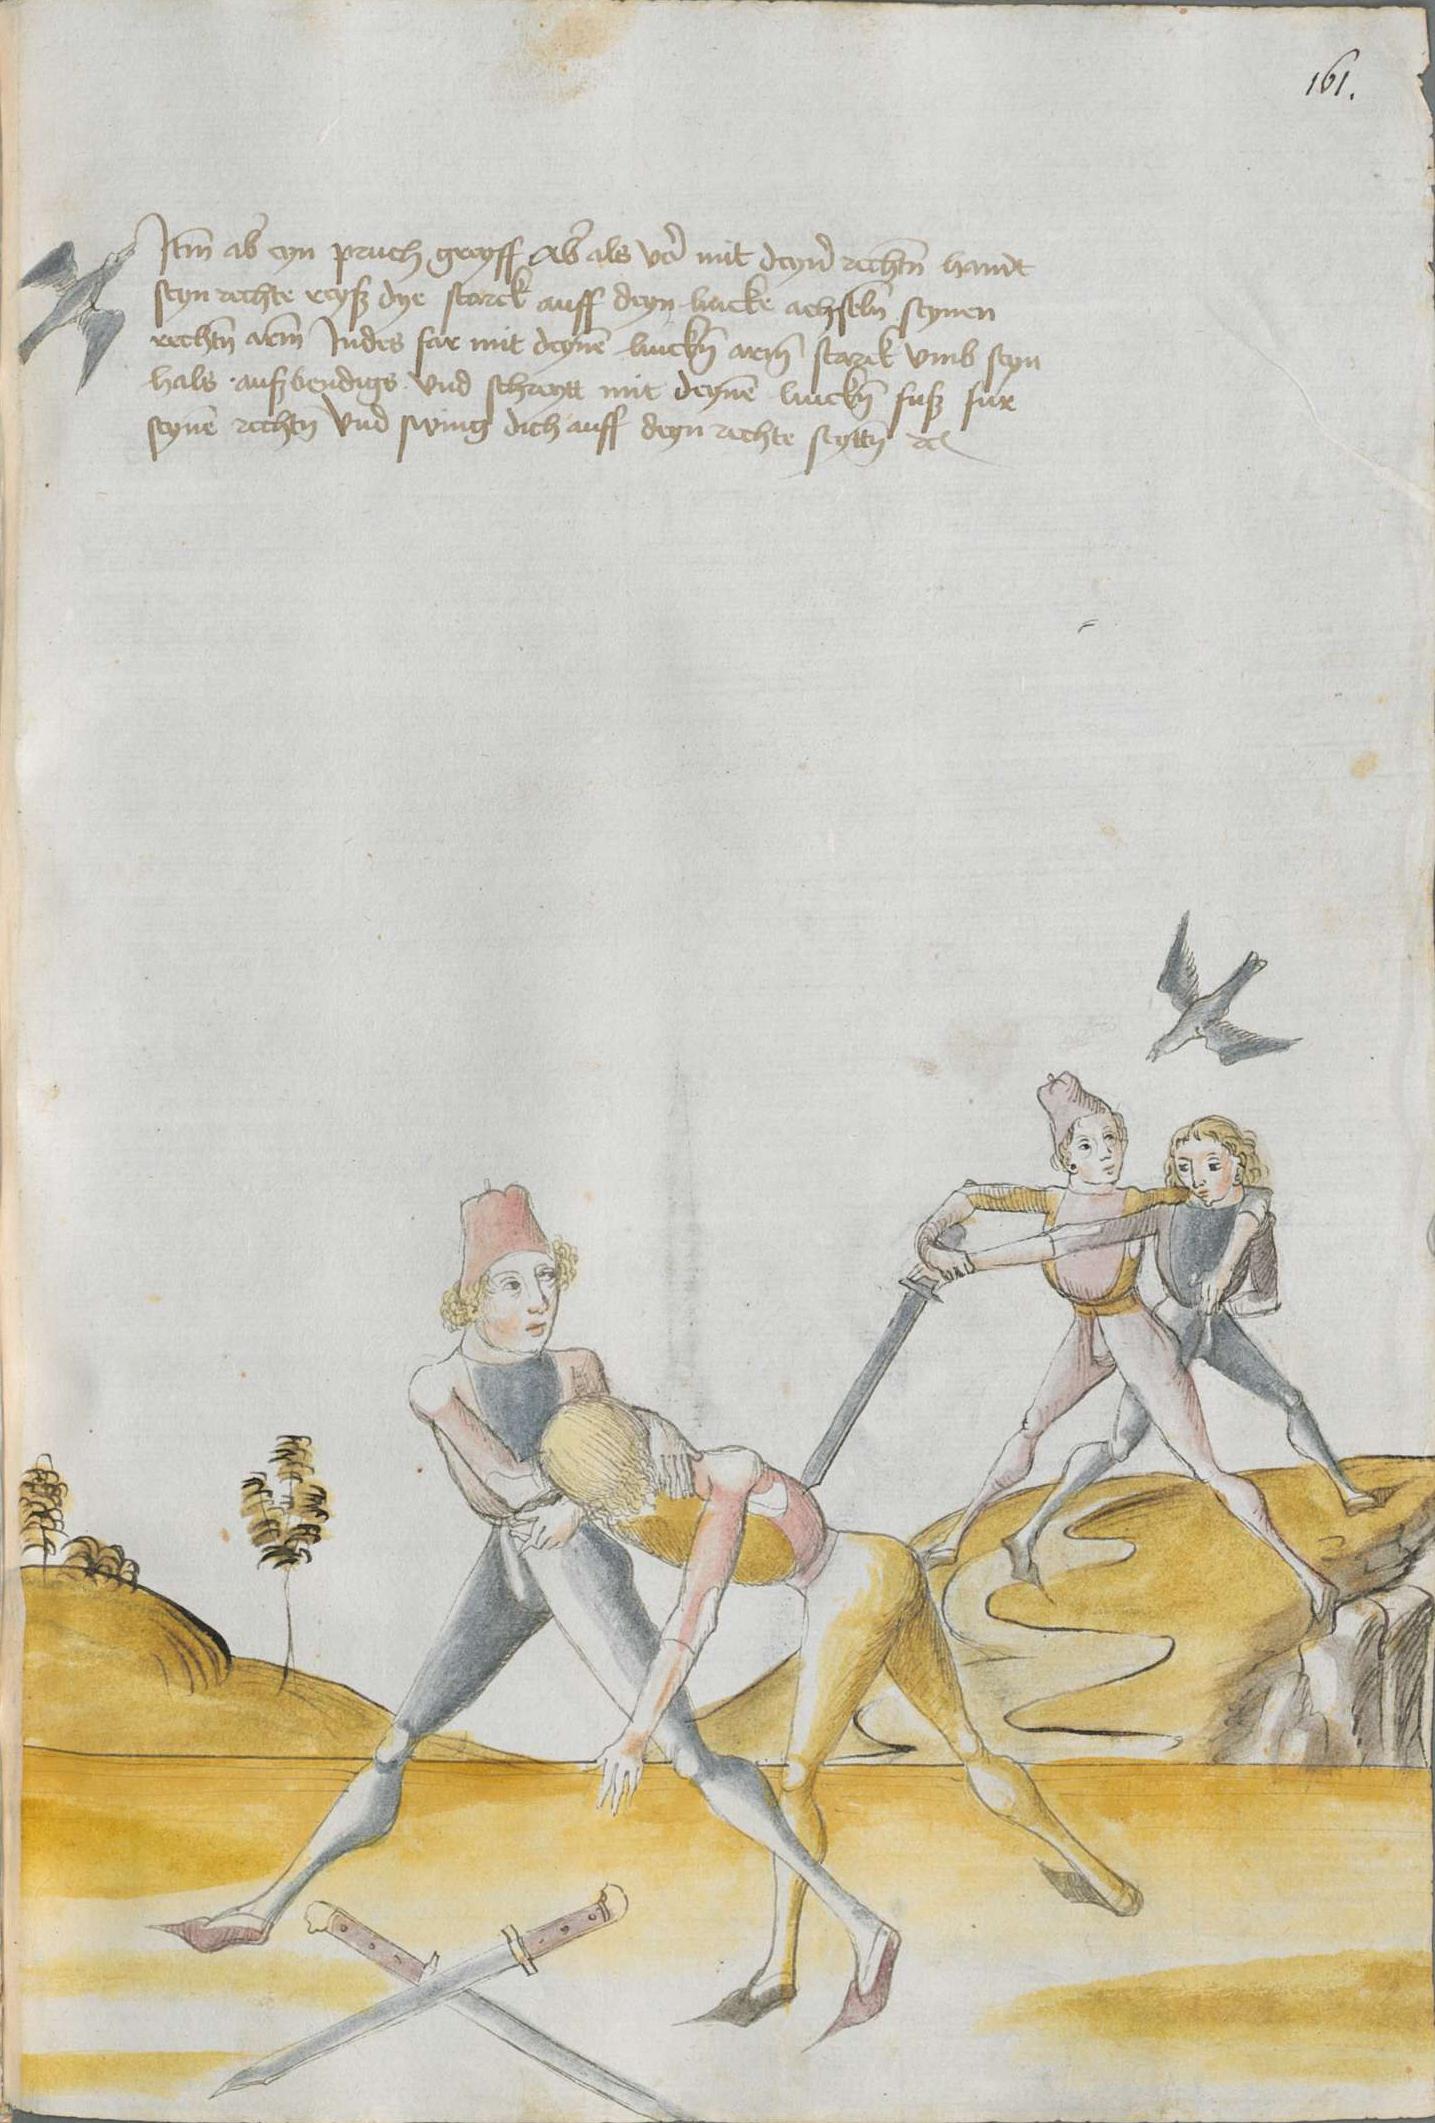 161.
Itm̄ ab̛ eyn pruch greyff Ab̛ als vō mit deyn̄ rechtn̄ handt
seyn rechte reyß dye starck auff deyn lincke achseln̄ seynen
rechtn̄ arm̄ Indes far mit deynē linckn̄ arm̄ starck vmb seyn
hals · außbendigs · vnd schreytt mit deynē linckn̄ fuß fur
seynē rechtn̄ Vnd swing dich auff deyn rechte seyttn̄ rc